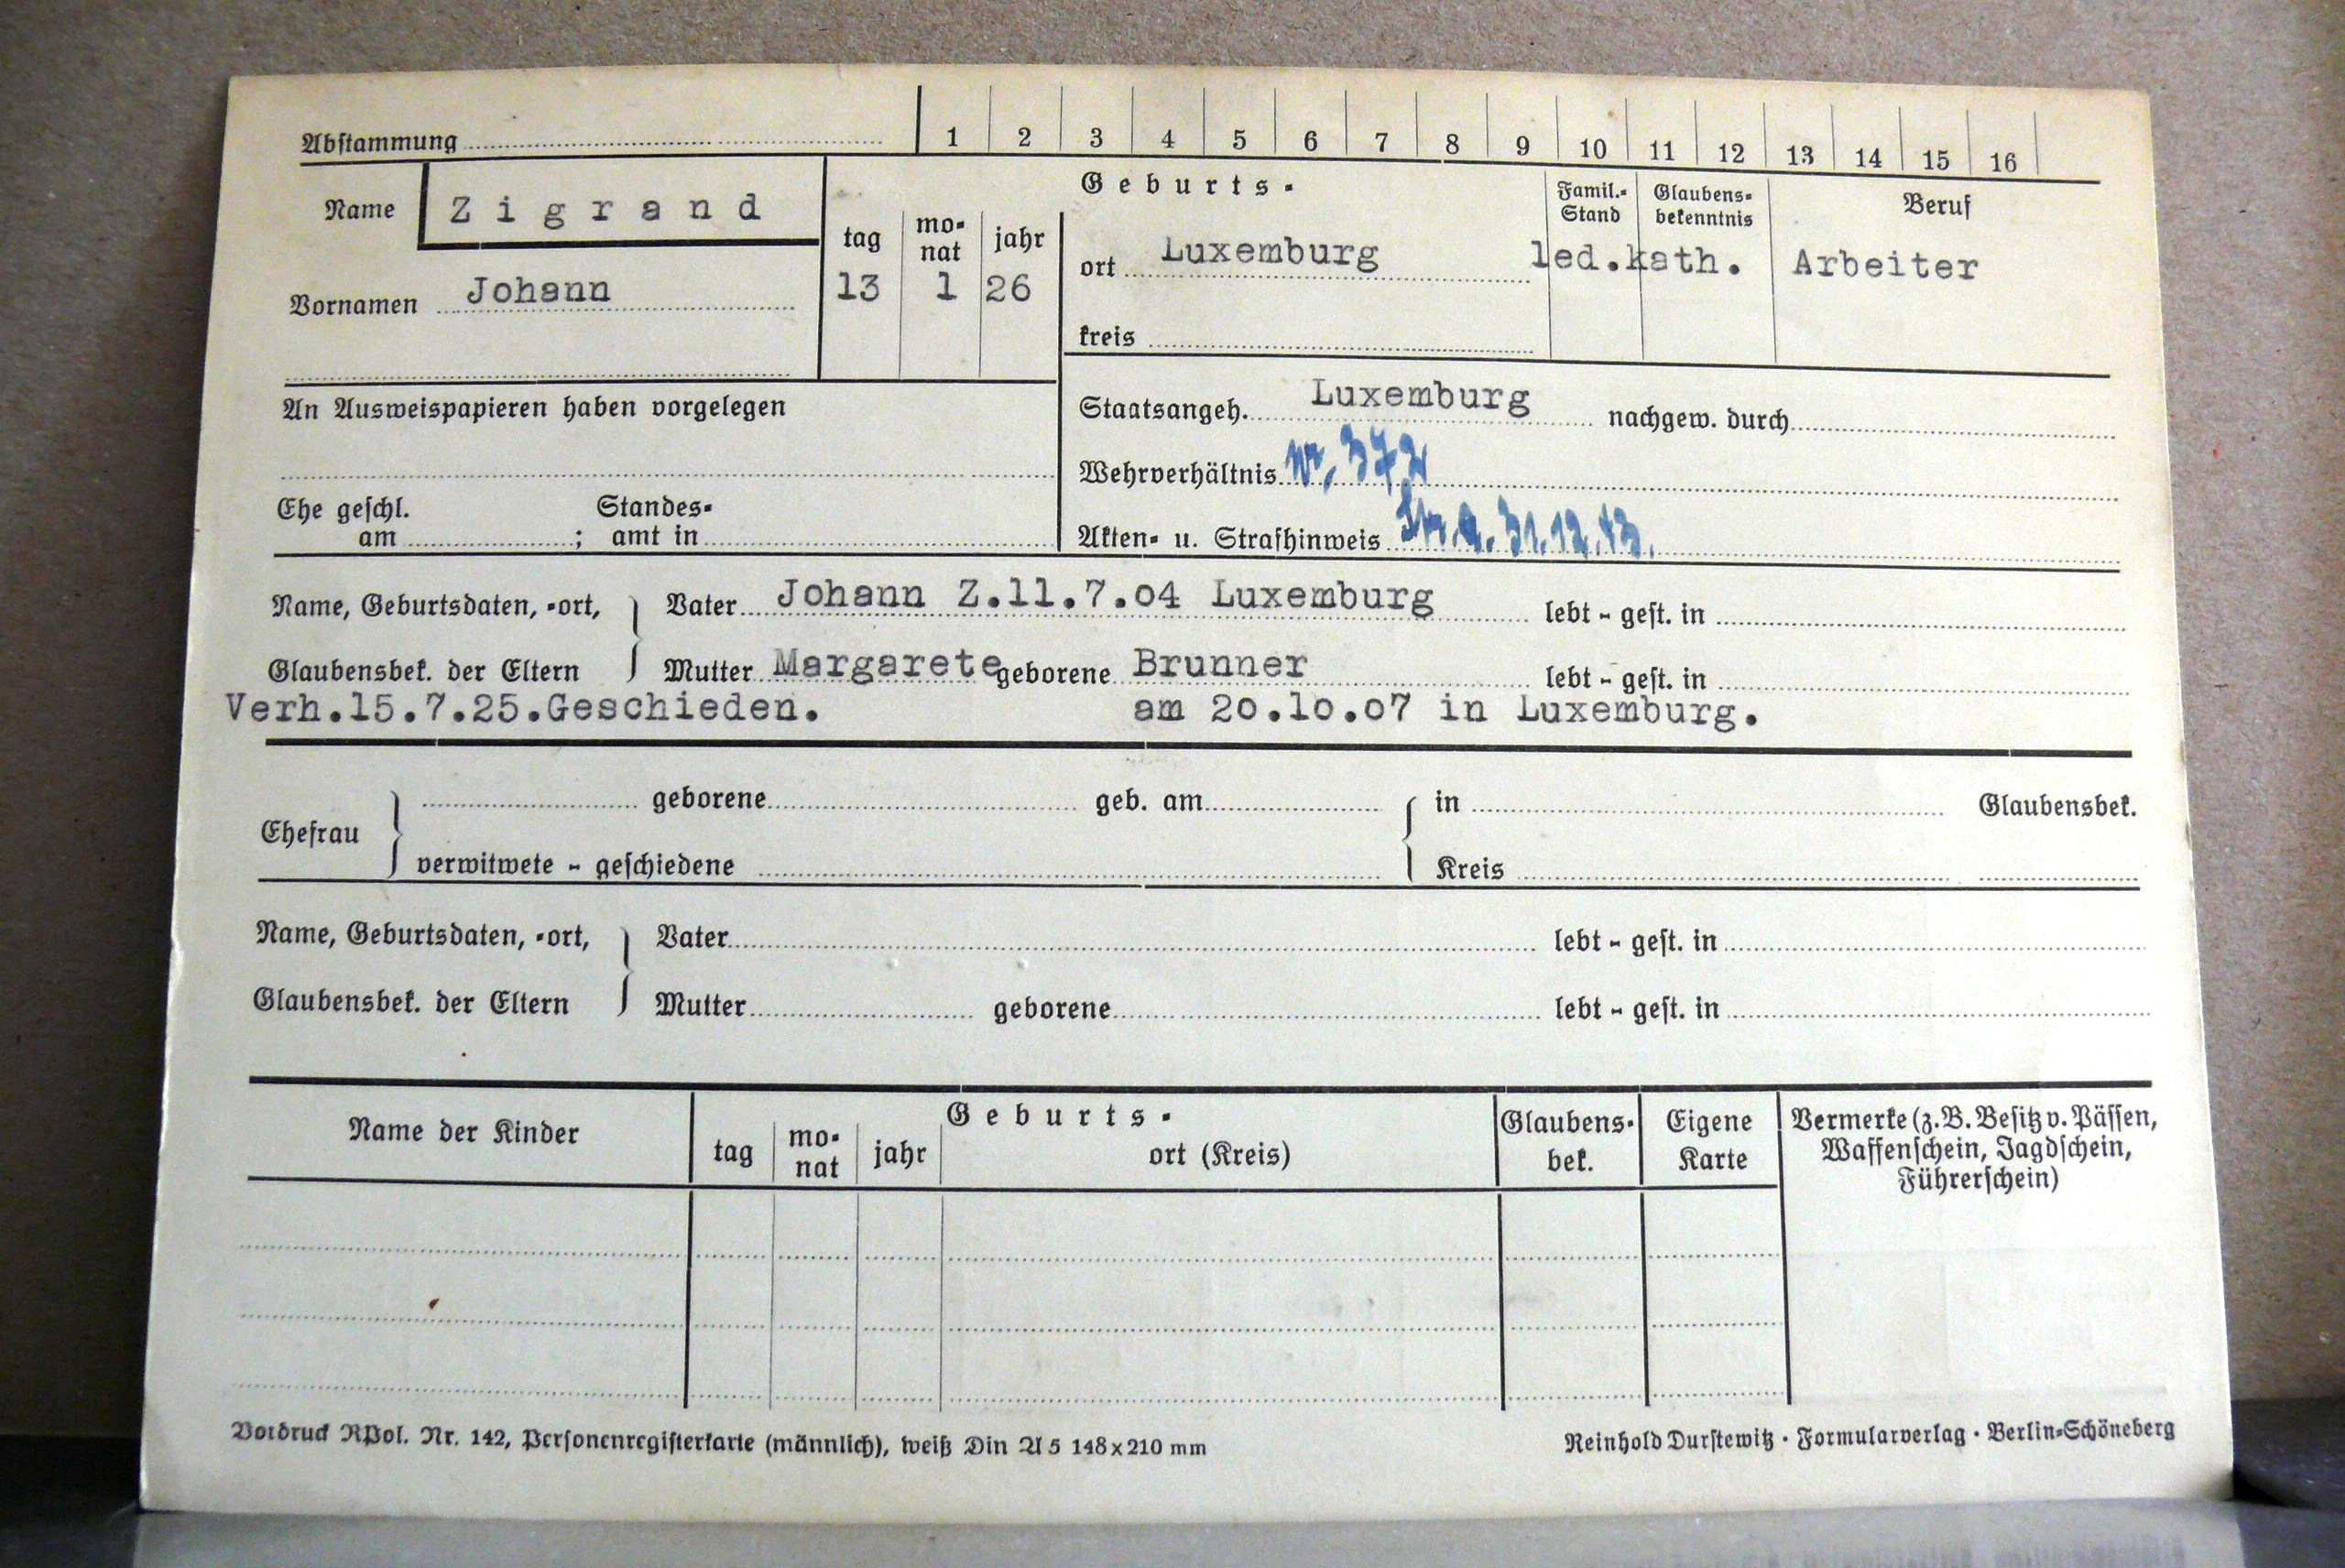 Abstammung 1 2 3 4 5 6 7 8 9 10 11 12 13 14 15 16
Name Zigrand
Vornamen Johann
Geburts-
tag monat jahr
13 1 26
ort Luxemburg
kreis
Famil.-Stand
led.
Glaubensbekenntnis
kath.
Beruf
Arbeiter
An Ausweispapieren haben vorgelegen
Staatsangeh. Luxemburg nachgew. durch
Wehrverhältnis Nr. 372
Ehe geschl. am ; Standesamt in
Akten- u. Strafhinweis 31.12.43.
Name, Geburtsdaten, -ort, Vater Johann Z.11.7.04 Luxemburg lebt - gest. in
Glaubensbek. der Eltern Mutter Margarete geborene Brunner lebt - gest. in
Verh.15.7.25.Geschieden. am 20.10.07 in Luxemburg.
Ehefrau geborene geb. am in Glaubensbek.
verwitwete - geschiedene Kreis
Name, Geburtsdaten, -ort, Vater lebt - gest. in
Glaubensbek. der Eltern Mutter geborene lebt - gest. in
Name der Kinder
Geburts-
tag monat jahr ort (Kreis)
Glaubensbek.
Eigene Karte
Vermerke (z. B. Besitz v. Pässen,
Waffenschein, Jagdschein,
Führerschein)
Vordruck RPol. Nr. 142, Personenregisterkarte (männlich), weiß Din A 5 148x210 mm
Reinhold Durstewitz · Formularverlag · Berlin-Schöneberg